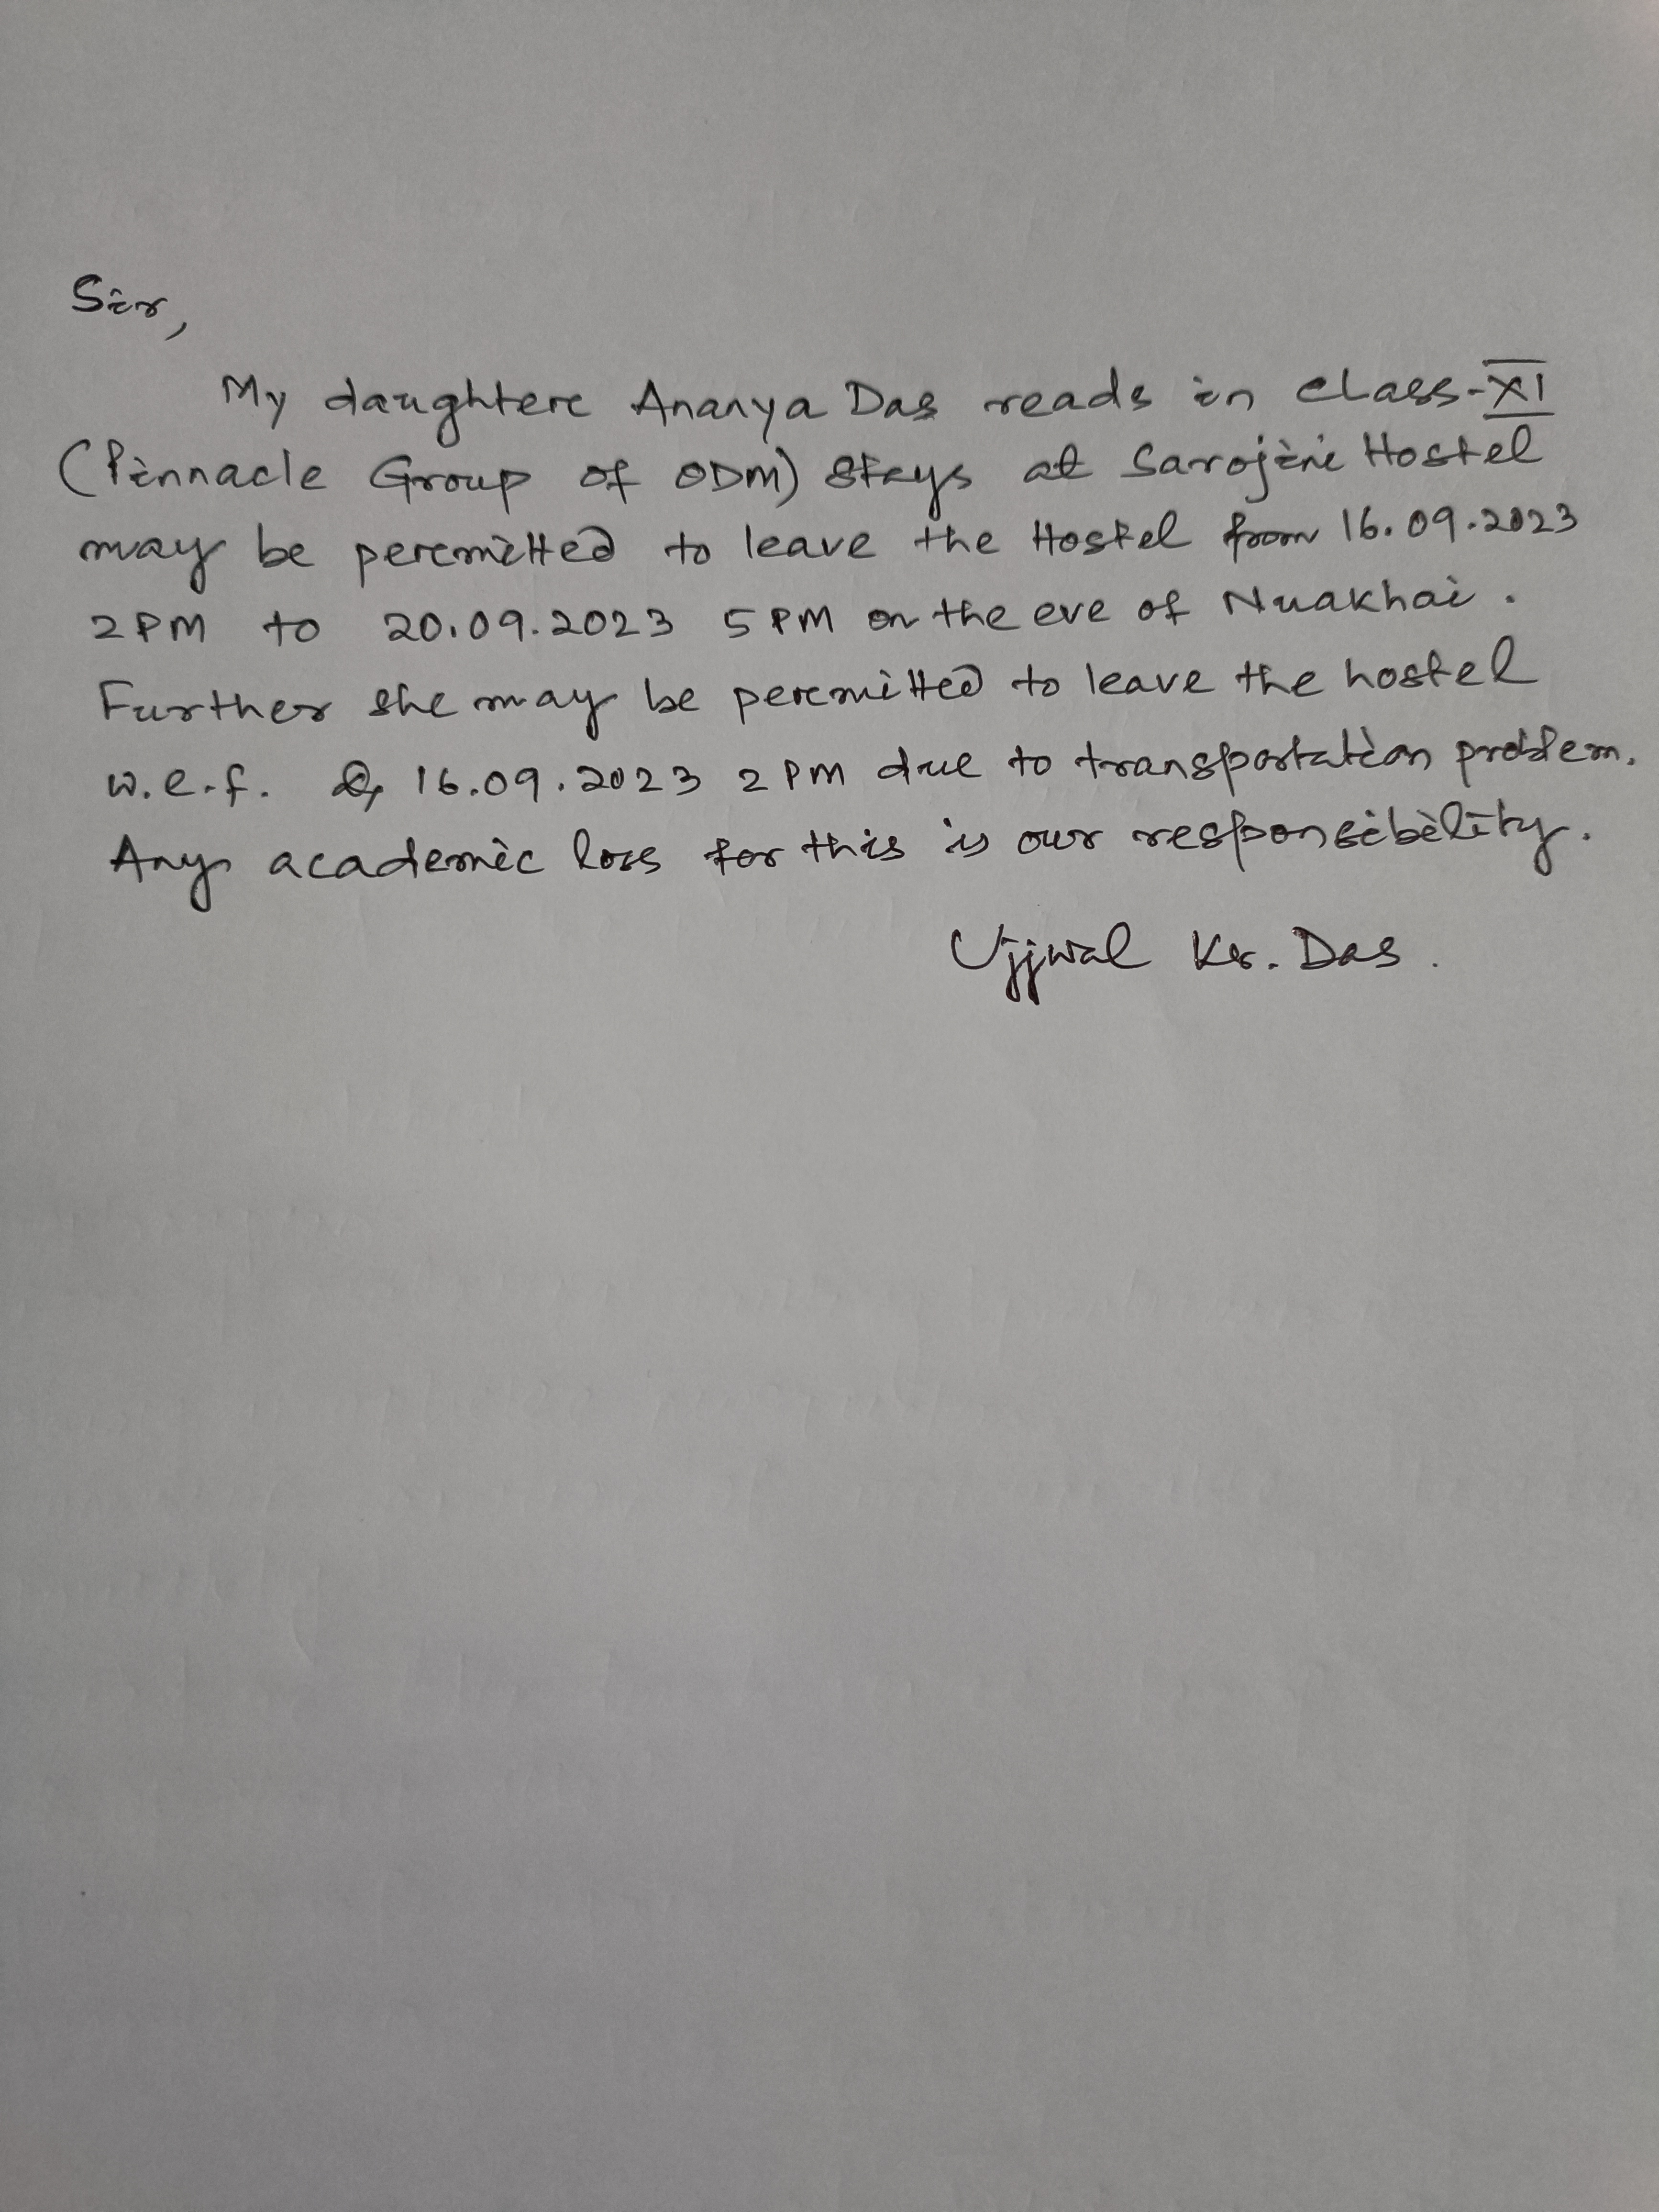 Sir,
My daughter Ananya Das reads in class-XI
(Pinnacle Group of ODM) stays at Sarojini Hostel
may be permitted to leave the Hostel from 16.09.2023
2 PM to 20.09.2023 5 PM on the eve of Nuakhai.
Further she may be permitted to leave the hostel
w.e.f. 16.09.2023 2 PM due to transportation problem.
Any academic loss for this is our responsibility.
Ujjwal Kr. Das.